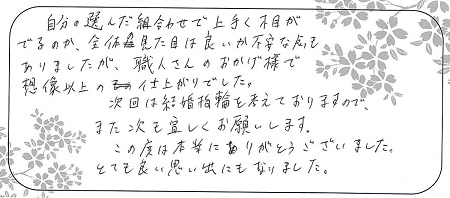 自分の選んだ組合わせで上手く木目が
でるのか、全体見た目は良いか不安な点も
ありましたが、職人さんのおかげ様で
想像以上の仕上がりでした。
次回は結婚指輪を考えておりますので、
また次も宜しくお願いします。
この度は本当にありがとうございました。
とても良い思い出にもなりました。